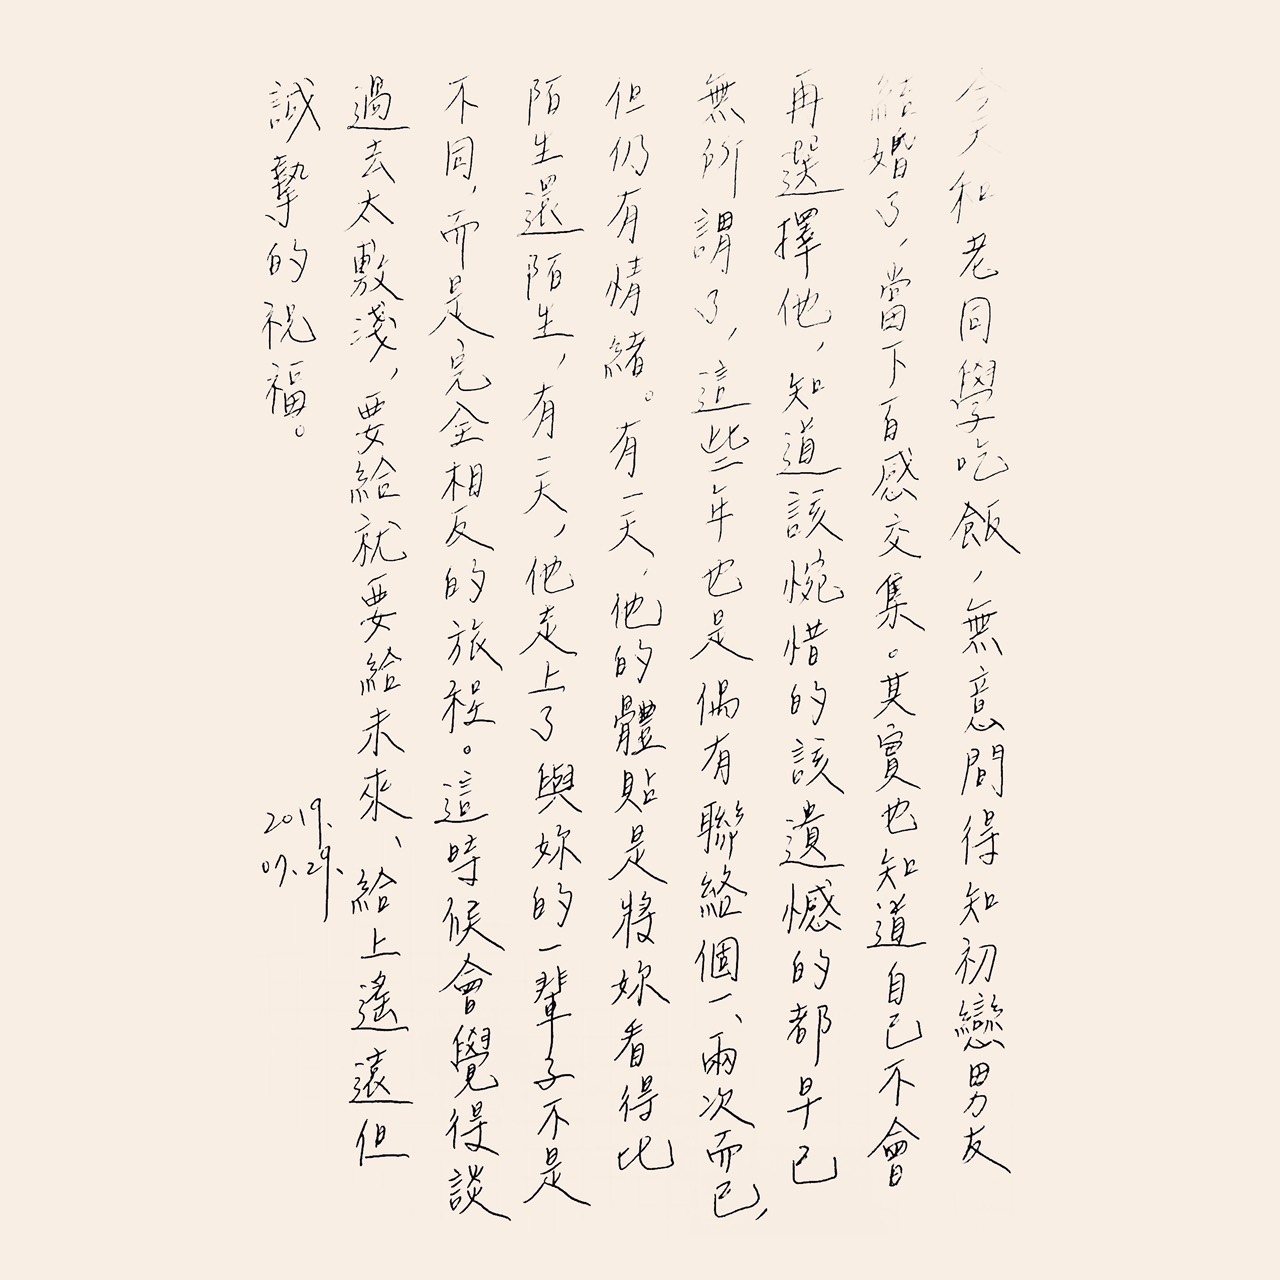 今天和老同學吃飯，無意間得知初戀男友
結婚了，當下百感交集。其實也知道自己不會
再選擇他，知道該惋惜的該遺憾的都早已
無所謂了，這些年也是偶有聯絡個一、兩次而已，
但仍有情緒。有一天，他的體貼是將妳看得比
陌生還陌生，有一天，他走上了與妳的一輩子不是
不同，而是完全相反的旅程。這時候會覺得談
過去太敷淺，要給就要給未來、給上遙遠但
誠摯的祝福。
2019.
07.29.